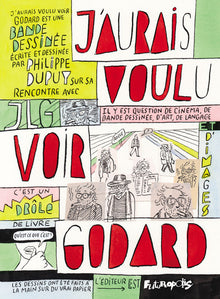 J'AURAIS VOULU VOIR
GODARD EST UNE
BANDE
DESSINÉE
ÉCRITE ET DESSINÉE
PAR PHILIPPE
DUPUY SUR SA
RENCONTRE AVEC
JLG
J'AURAIS
VOULU
IL Y EST QUESTION DE CINÉMA, DE
BANDE DESSINÉE, D'ART, DE LANGAGE
D'IMAGES
VOIR
C'EST UN
DRÔLE
DE LIVRE
QU'EST CE QUE C'EST ?
GODARD
LES DESSINS ONT ÉTÉ FAITS À
LA MAIN SUR DU VRAI PAPIER
L'ÉDITEUR EST
Futuropolis